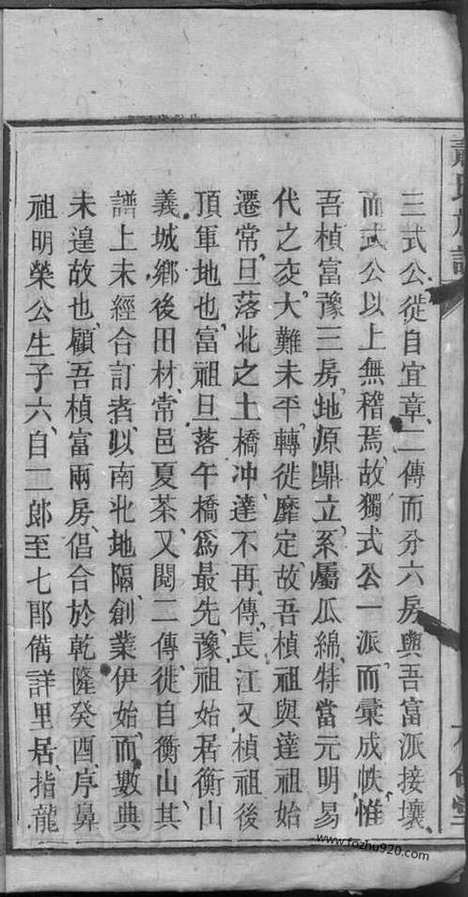 三式公徙自宜章二傳而分六房與吾富派接壤
而式公以上無稽焉故獨式公一派而彙成帙惟
吾楨富豫三房地原鼎立系屬瓜綿特當元明易
代之交大難未平轉徙靡定故吾楨祖與達祖始
遷常旦落北之土橋冲達不再傳長江又楨祖後
頂軍地也富祖旦落午橋爲最先豫祖始居衡山
義城鄉後田材常邑夏茶又閱二傳徙自衡山其
譜上未經合訂者以南北地隔創業伊始而數典
未遑故也顧吾楨富兩房倡合於乾隆癸酉序鼻
祖明榮公生子六自二郎至七郎備詳里居指龍
氏族
www.fozhu920.com